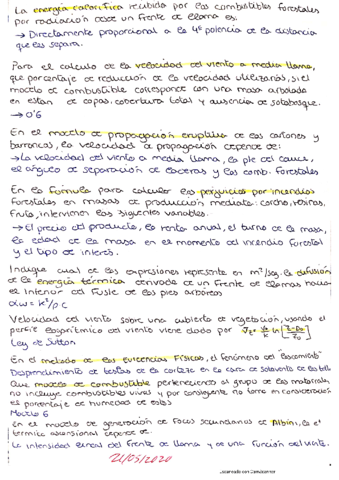 La energía calorífica recibida por los combustibles forestales
por radiación desde un frente de llamas es:
→ Directamente proporcional a la 4ª potencia de la distancia
que les separa.
Para el calculo de la velocidad del viento a media llama,
que porcentaje de reducción de la velocidad utilizarías, si el
modelo de combustible corresponde con una masa arbolada
en estan de copas, cobertura total y ausencia de sotobosque.
→ 0'6
En el modelo de propagación eruptiva de los cañones y
barrancos, la velocidad de propagación depende de:
→ La velocidad del viento a media llama, la pte del cauce,
el ángulo de separación de laderas y los comb. forestales
En la fórmula para calcular los perjuicios por incendios
forestales en masas de producción mediata: corcho, resinas,
fruto, intervienen las siguientes variables.
→ El precio del producto, la renta anual, el turno de la masa,
la edad de la masa en el momento del incendio forestal
y el tipo de interés.
Indique cual de las expresiones representa en m²/seg. la difusión
de la energía térmica derivada de un frente de llamas hacia
el interior del fuste de los pies arbóreos
αw = k/ρ C
Velocidad del viento sobre una cubierta de vegetación, usando el
perfil logarítmico del viento viene dado por
Ley de Sutton
En el metodo de las evidencias físicas, el fenómeno del
Desprendimiento de de la corteza en la cara de sotavento de
Que modelo de combustible perteneciendo al grupo de los matorrales,
no incluye combustibles vivos y por consiguiente no tiene en consideración
el porcentaje de humedad de estos
Modelo 6
En el modelo de generación de focos secundarios de Albini, la
térmica ascensional depende de:
La intensidad lineal del frente de llama y de una función del viento.
21/05/2020
Escaneado con CamScanner